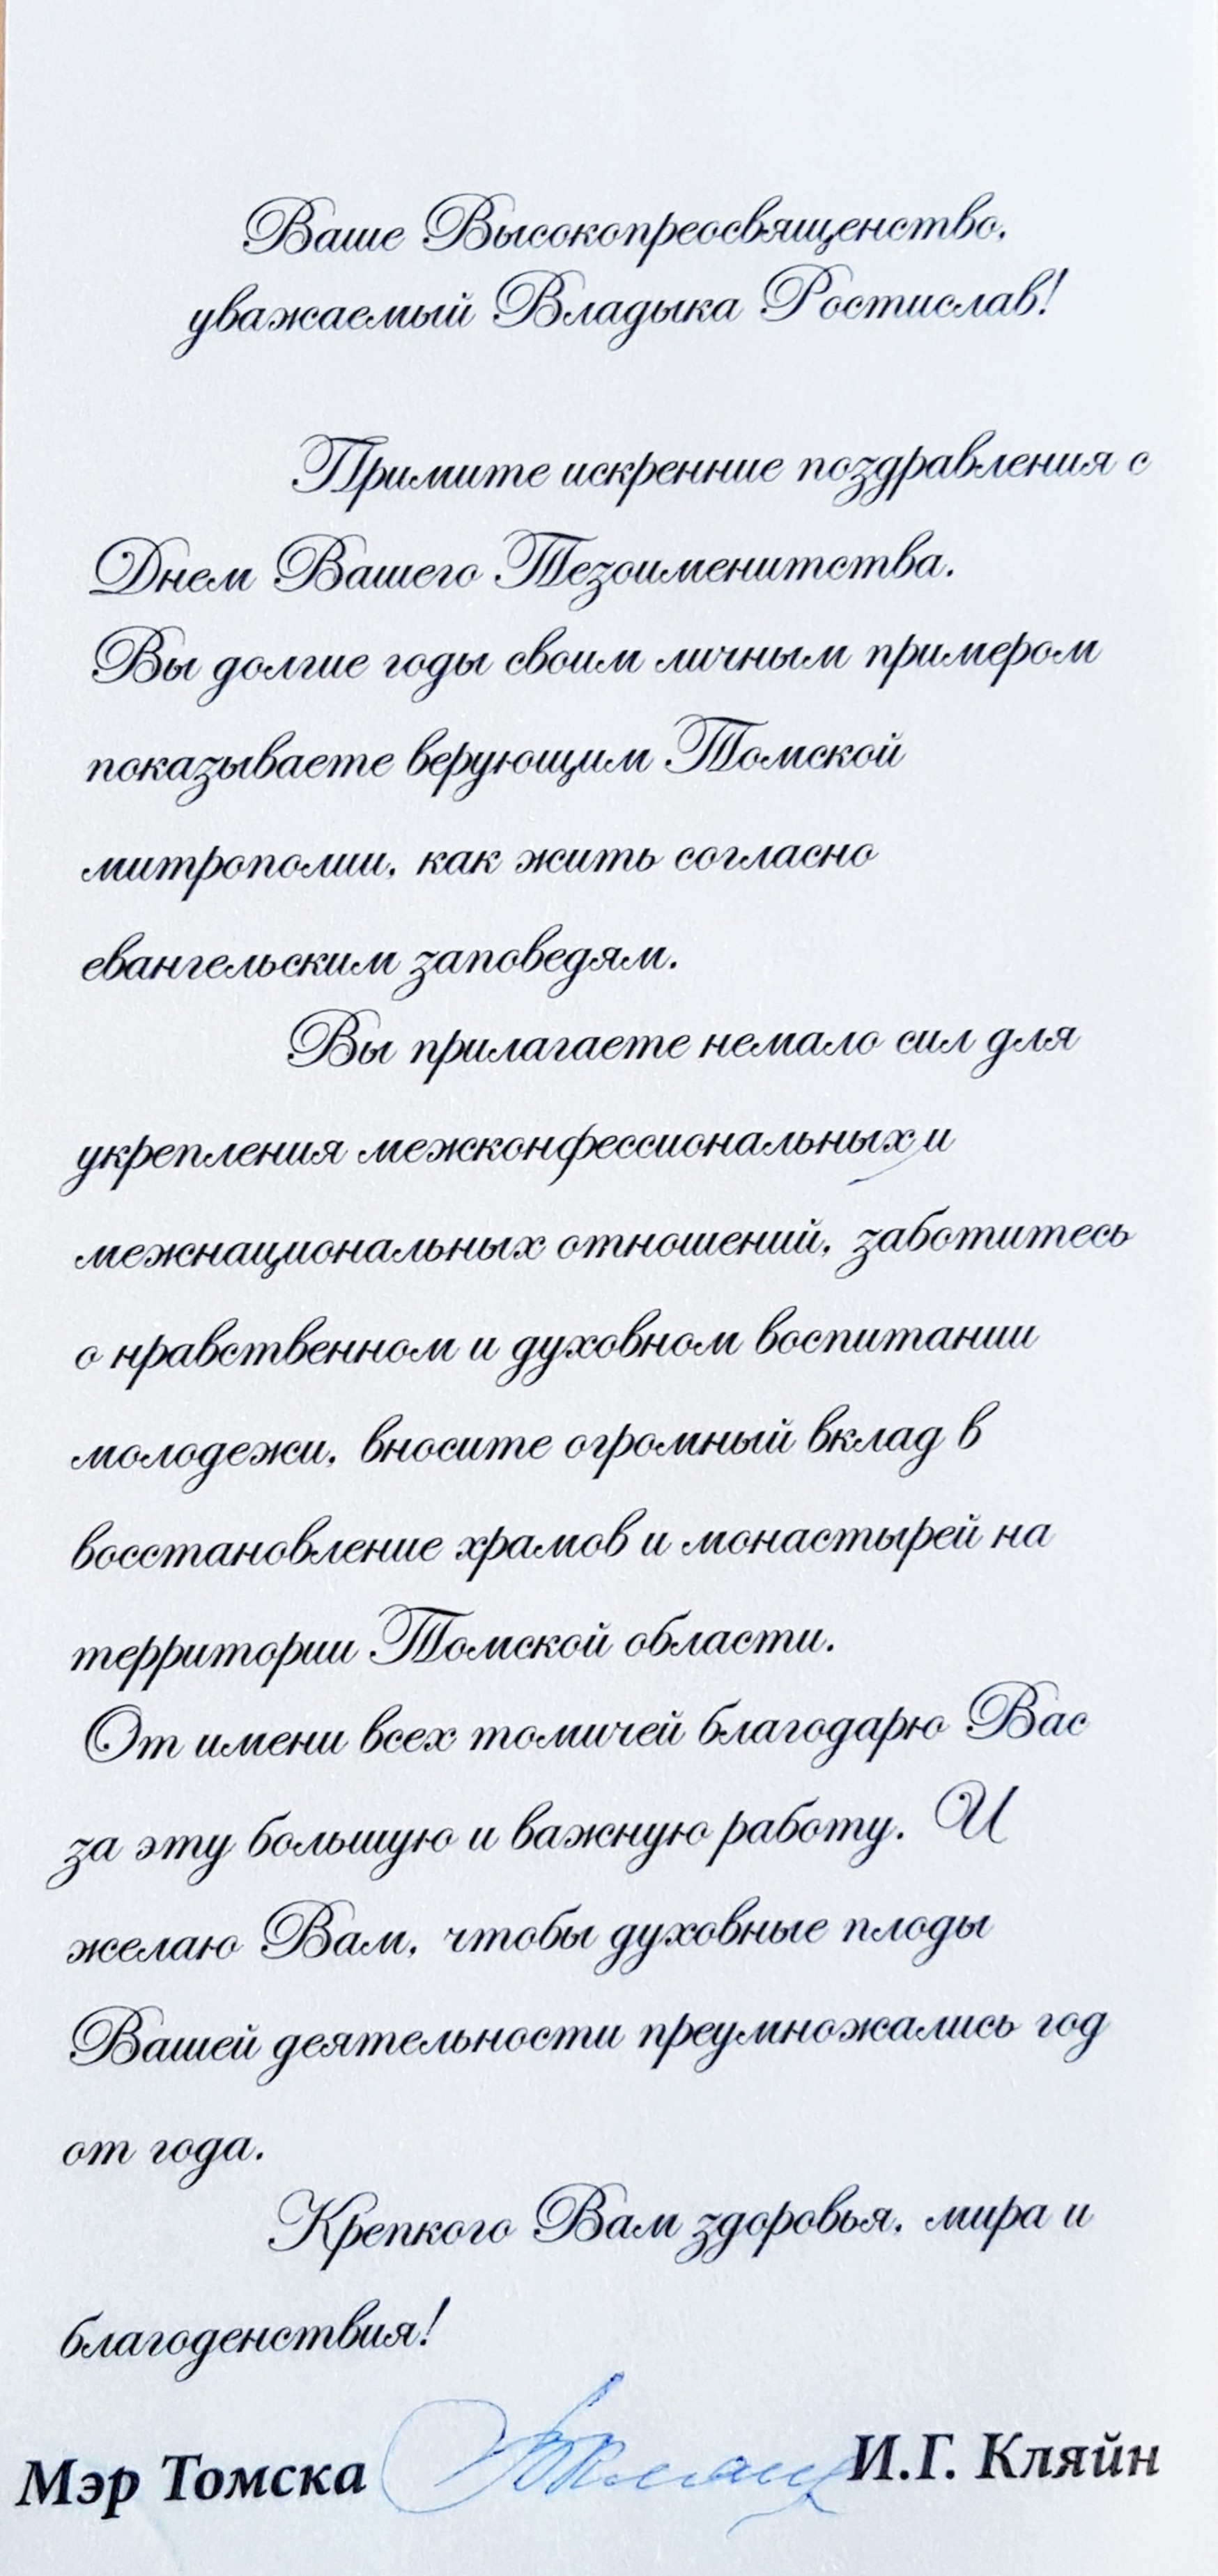 Ваше Высокопреосвященство,
уважаемый Владыка Ростислав!
Примите искренние поздравления с
Днем Вашего Тезоименитства.
Вы долгие годы своим личным примером
показываете верующим Томской
митрополии, как жить согласно
евангельским заповедям.
Вы прилагаете немало сил для
укрепления межконфессиональных и
межнациональных отношений, заботитесь
о нравственном и духовном воспитании
молодежи, вносите огромный вклад в
восстановление храмов и монастырей на
территории Томской области.
От имени всех томичей благодарю Вас
за эту большую и важную работу. И
желаю Вам, чтобы духовные плоды
Вашей деятельности преумножались год
от года.
Крепкого Вам здоровья, мира и
благоденствия!
Мэр Томска И.Г. Кляйн